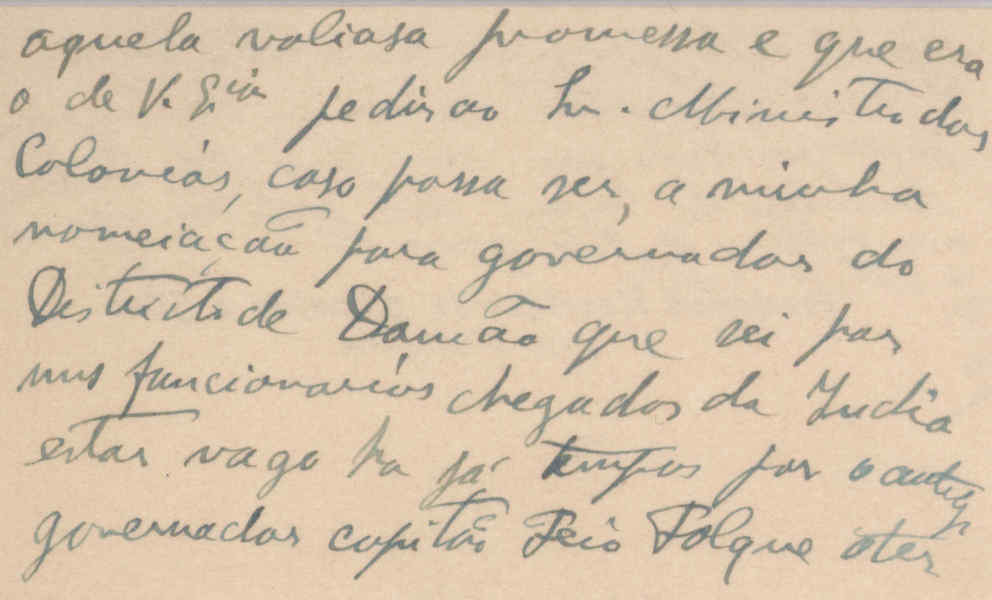 aquela valiosa promessa e que era
o de V. Ex.cia pedir ao Sr. Ministro das
Colonias, caso possa ser, a minha
nomeiação para governador do
Districto de Damão que sei por
uns funcionarios chegados da India
estar vago ha já tempos por o antigo
governador capitão Feio Folque o ter